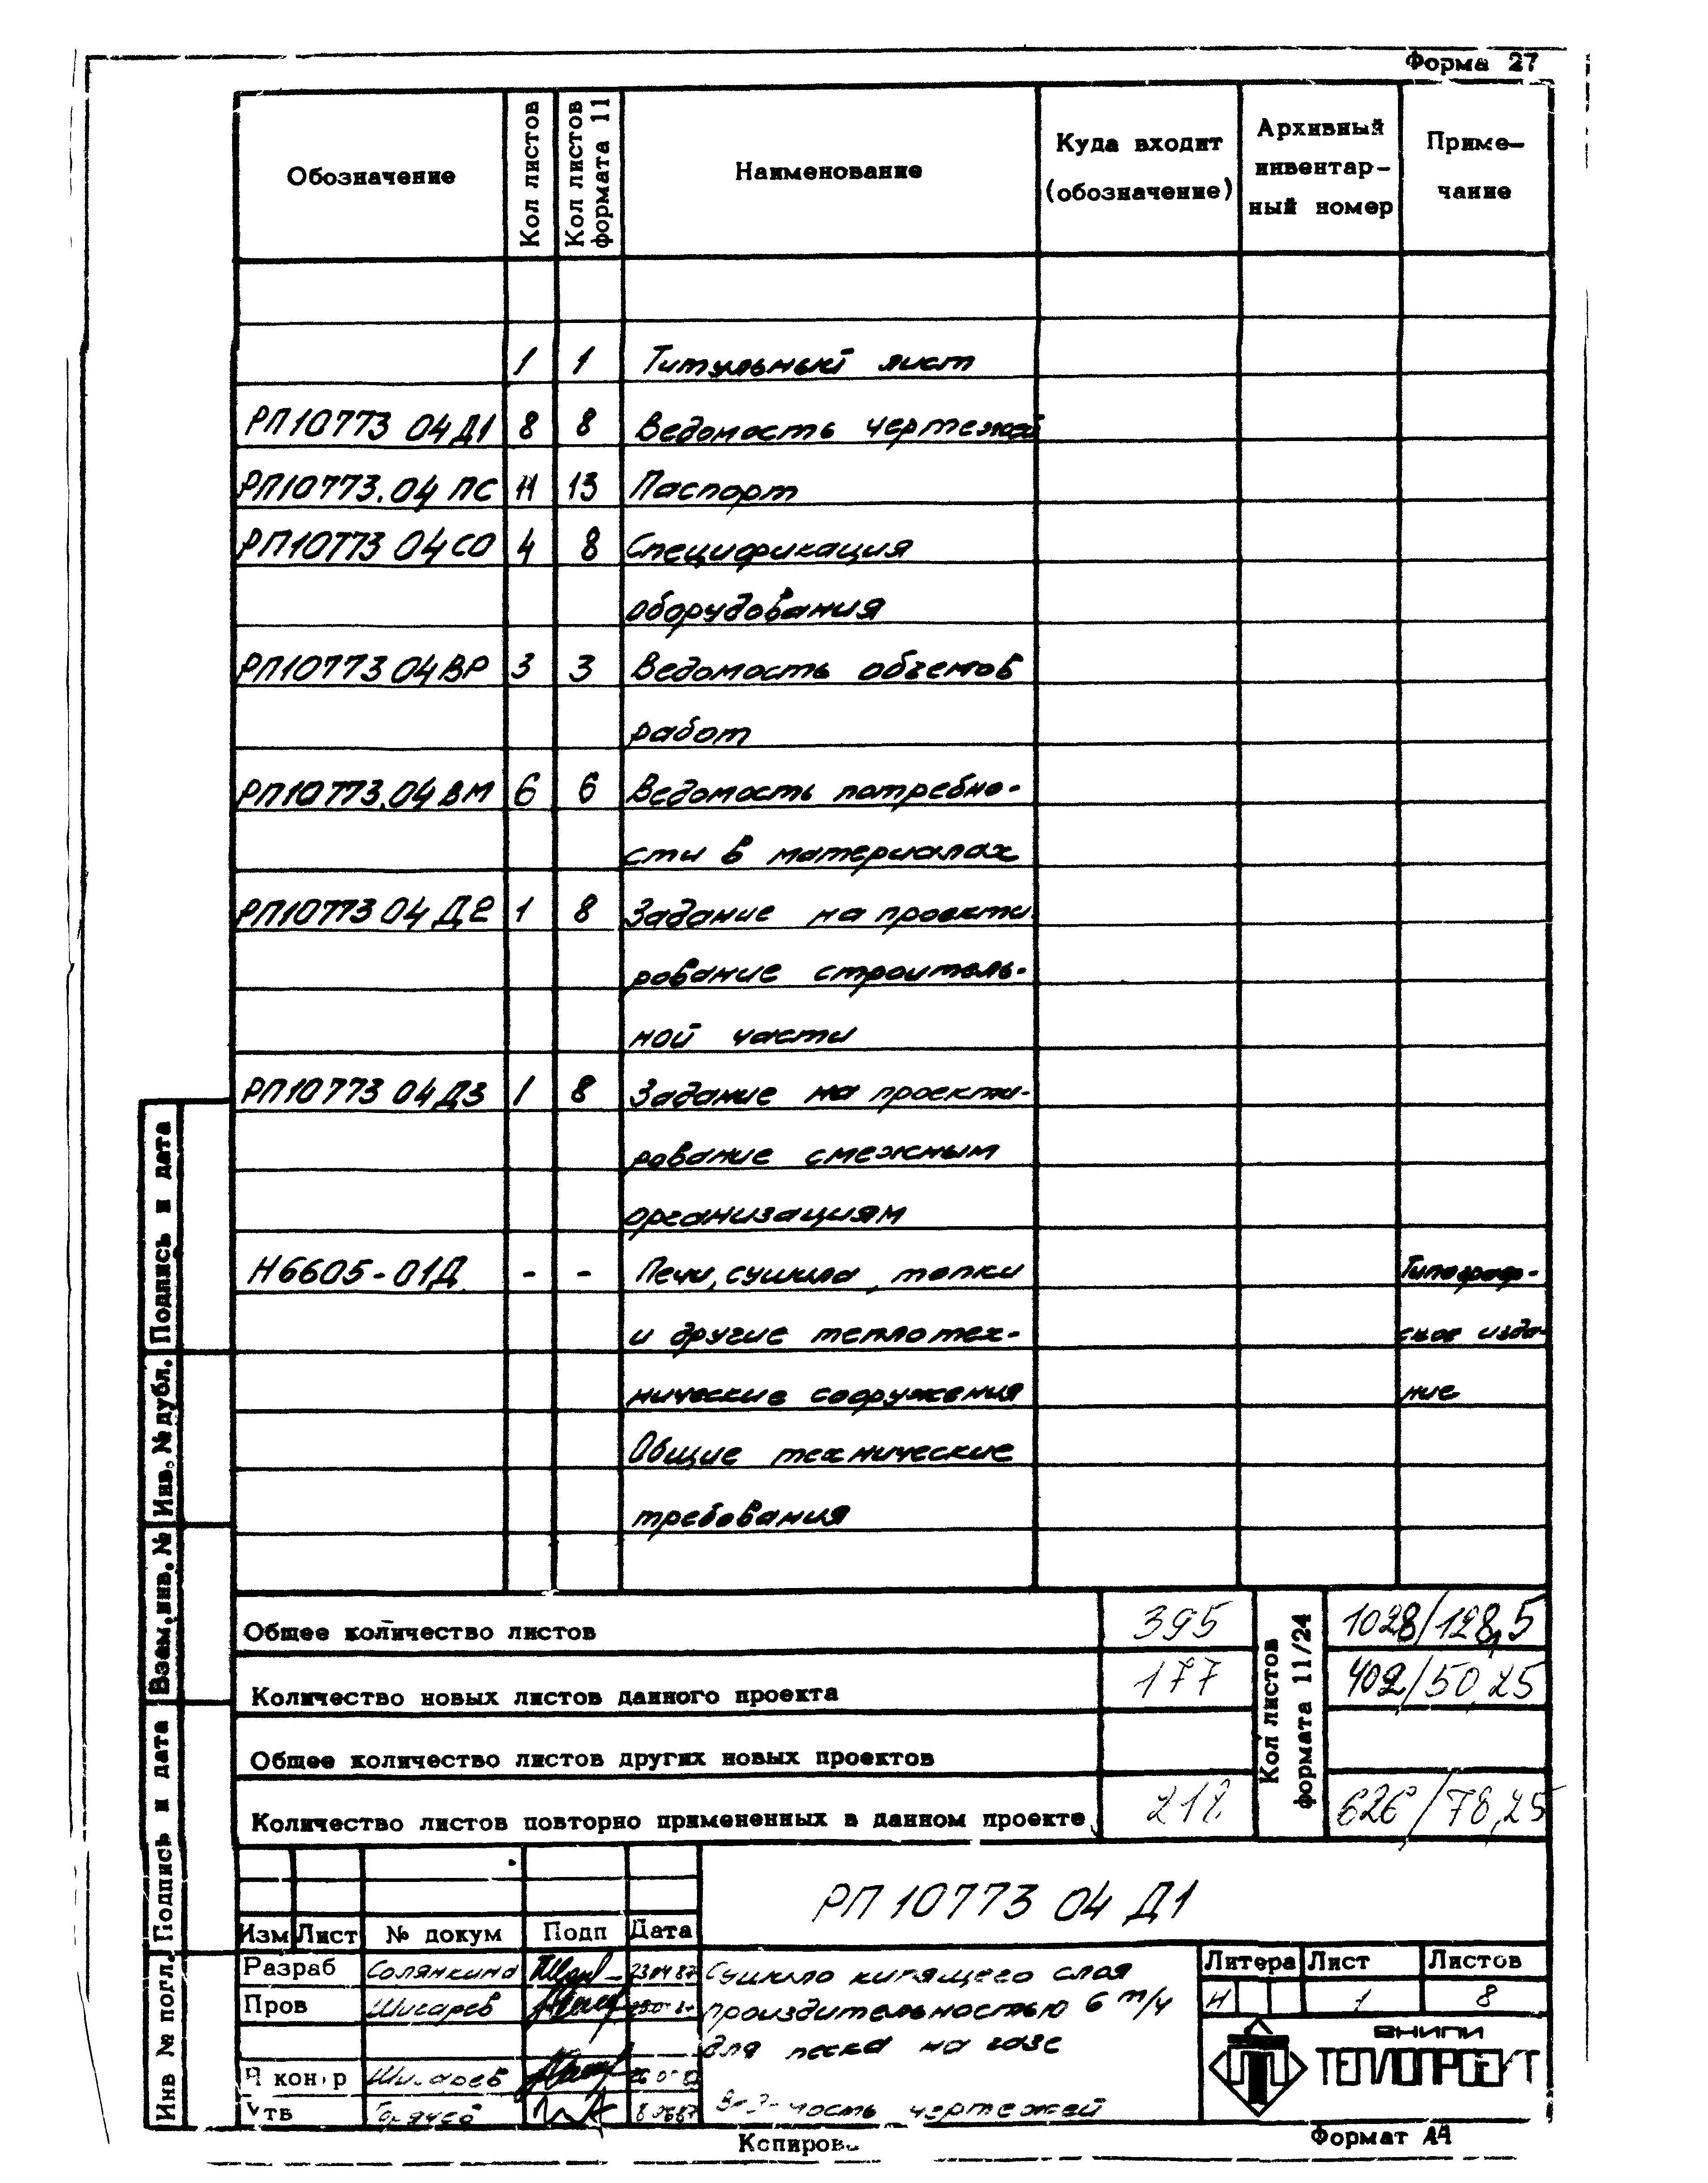 Форма 27
Обозначение
Кол листов
Кол листов формата 11
Наименование
Куда входит (обозначение)
Архивный инвентар- ный номер
Приме- чание
1 1 Титульный лист
РП10773 04Д1 8 8 Ведомость чертежей
РП10773.04 ПС 11 13 Паспорт
РП10773 04СО 4 8 Спецификация
оборудования
РП10773 04ВР 3 3 Ведомость объемов
работ
РП10773.04ВМ 6 6 Ведомость потребно-
сти в материалах
РП10773 04 Д2 1 8 Задание на проекти-
рование строитель-
ной части
РП10773 04Д3 1 8 Задание на проекти-
рование смежным
организациям
Н6605-01Д - - Печи, сушила, топки Типограф-
и другие теплотех- ское изда-
нические сооружения ние
Общие технические
требования
Общее количество листов 395 1028/128,5
Количество новых листов данного проекта 177 402/50,25
Общее количество листов других новых проектов
Количество листов повторно примененных в данном проекте 218 626/78,25
Кол листов формата 11/24
Подпись и дата
Инв. № дубл.
Взам.инв. №
Подпись и дата
Инв № погл.
РП 10773 04 Д1
Изм Лист № докум Подп Дата
Разраб Солянкина 23.04.87
Пров Шисарев
Н контр Шисарев
Утв
Сушило кипящего слоя
производительностью 6 т/ч
для песка на газе
Ведомость чертежей
Литера Лист Листов
И 1 8
ВНИПИ
ТЕПЛОПРОЕКТ
Копирова
Формат А4